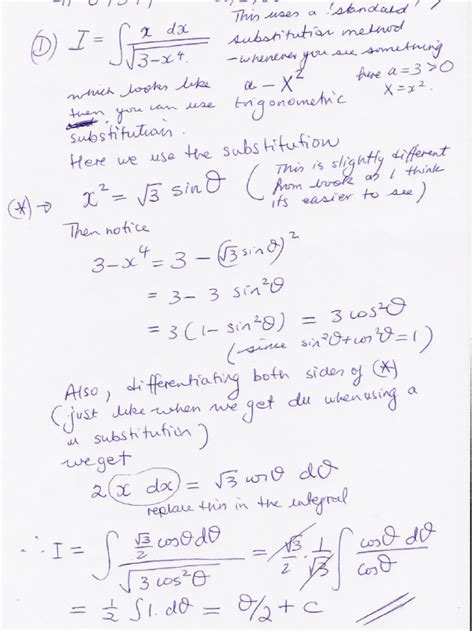 ① I = ∫ x dx / √(3-x⁴)
This uses a 'standard'
substitution method
- whenever you see something
which looks like a - X² here a = 3 > 0
X = x².
then you can use trigonometric
substitution.
Here we use the substitution
(*) → x² = √3 sin θ (This is slightly different
from book as I think
its easier to see)
Then notice
3 - x⁴ = 3 - (√3 sin θ)²
= 3 - 3 sin²θ
= 3(1 - sin²θ) = 3 cos²θ
(since sin²θ + cos²θ = 1)
Also, differentiating both sides of (*)
(just like when we get du when using a
u substitution)
we get
2 (x dx) = √3 cos θ dθ
replace this in the integral
∴ I = ∫ (√3/2 cos θ dθ) / √(3 cos²θ) = √3/2 · 1/√3 ∫ cos θ dθ / cos θ
= 1/2 ∫ 1. dθ = θ/2 + c